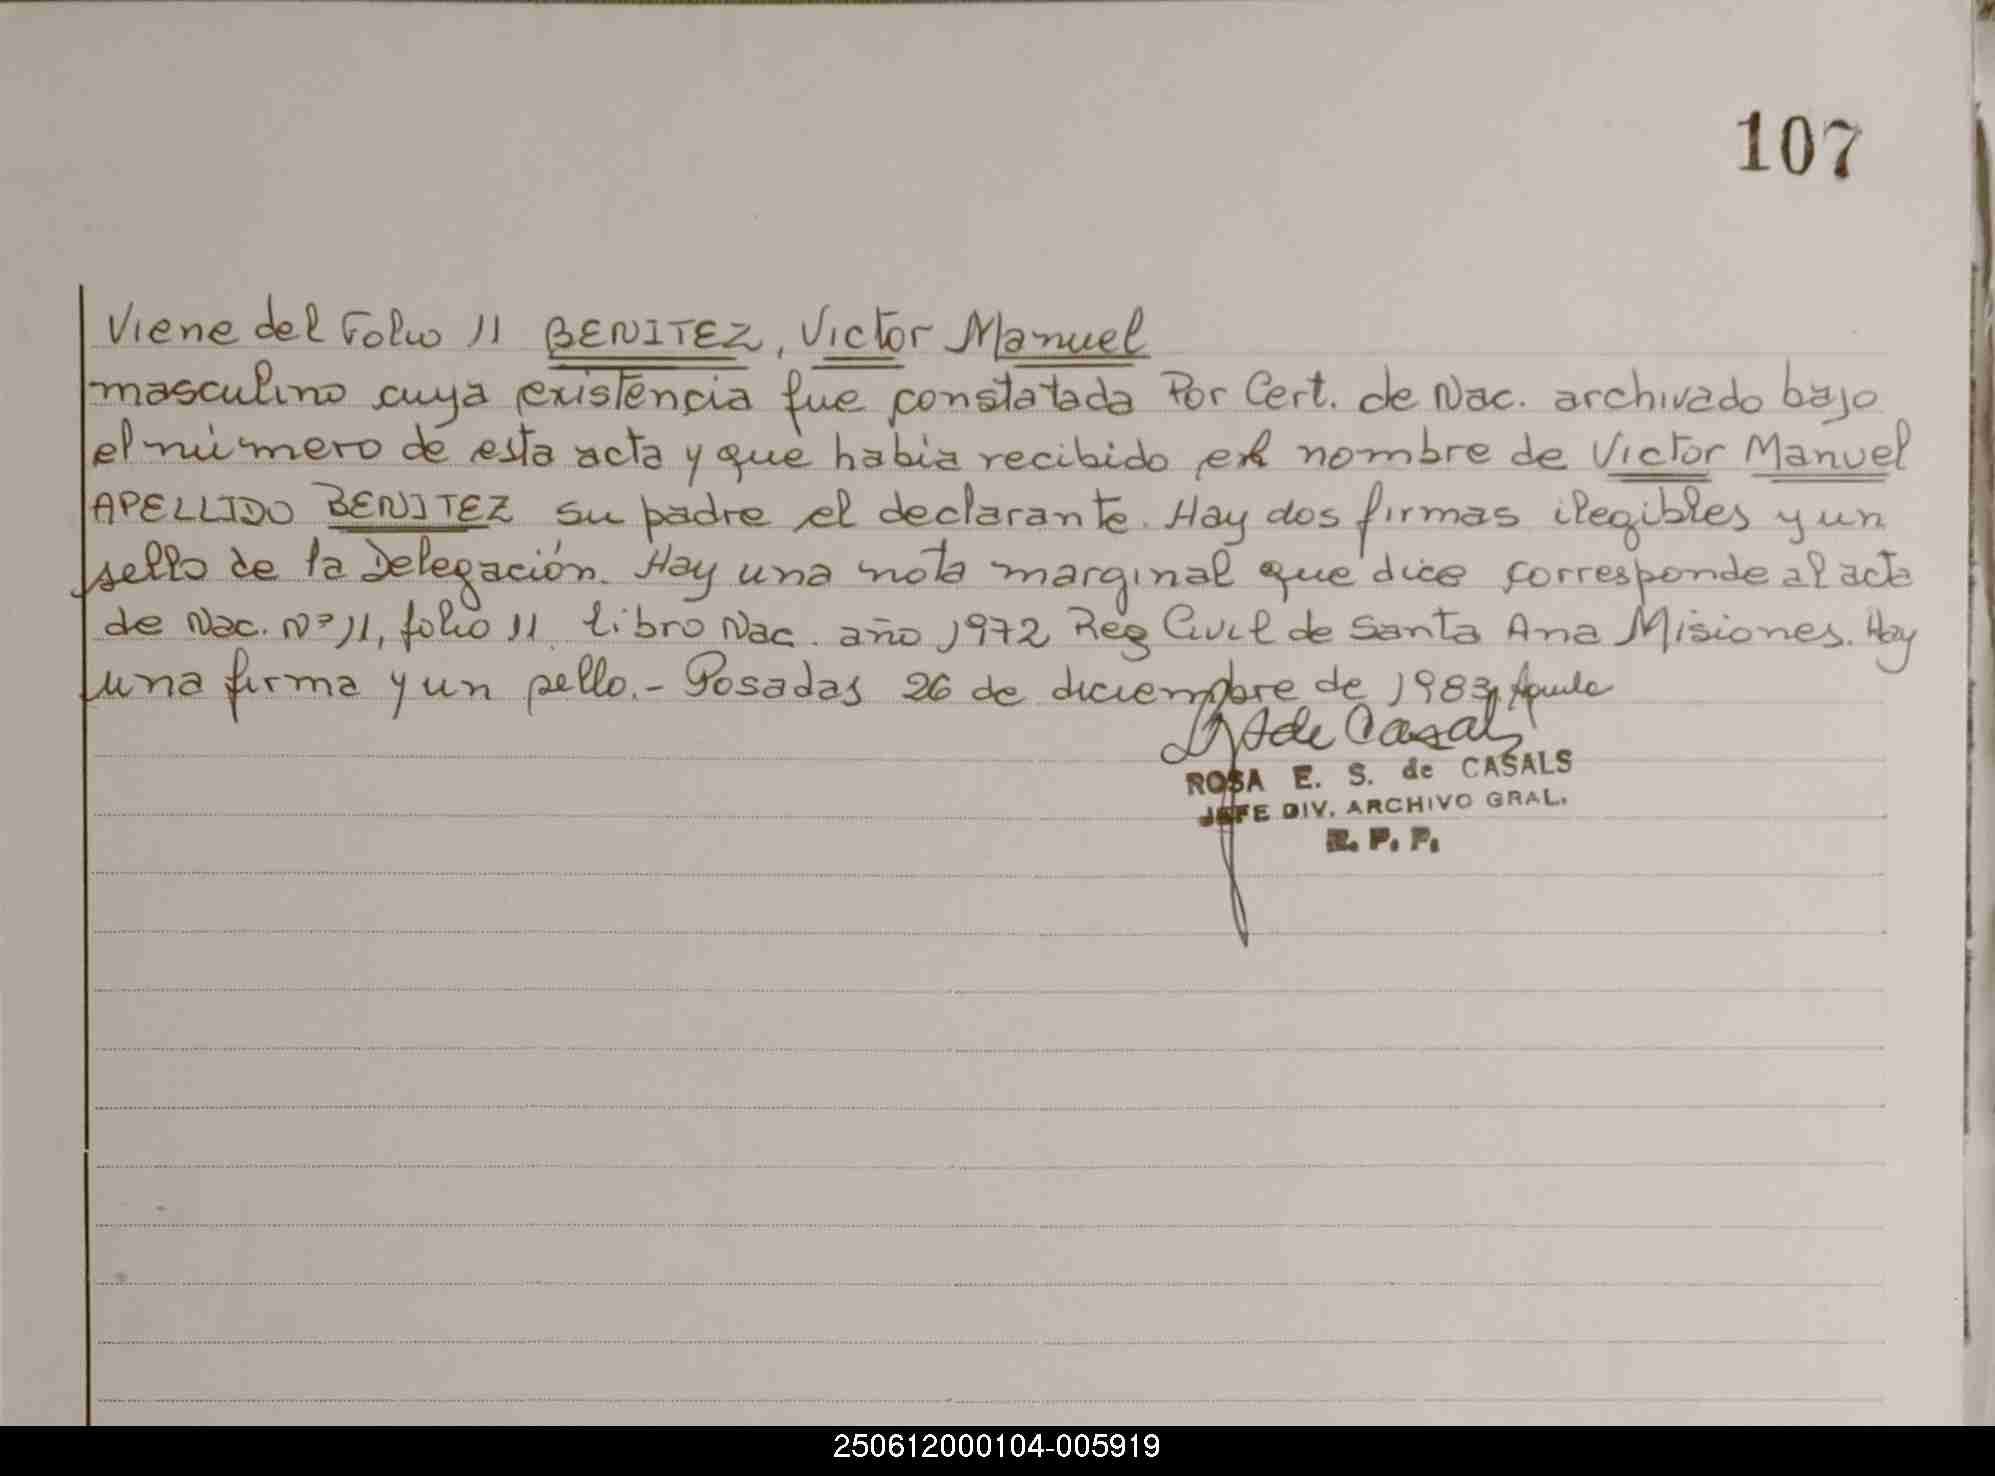 107
Viene del Folio 11 BENITEZ, Victor Manuel
masculino cuya existencia fue constatada Por Cert. de Nac. archivado bajo
el número de esta acta y que habia recibido el nombre de Victor Manuel
APELLIDO BENITEZ su padre el declarante. Hay dos firmas ilegibles y un
sello de la Delegación. Hay una nota marginal que dice corresponde al acta
de Nac. Nº 11, folio 11 libro Nac. año 1972 Reg Civil de Santa Ana Misiones. Hay
una firma y un sello.- Posadas 26 de diciembre de 1983
de Casals
ROSA E. S. de CASALS
JEFE DIV. ARCHIVO GRAL.
R. P. P.
250612000104-005919